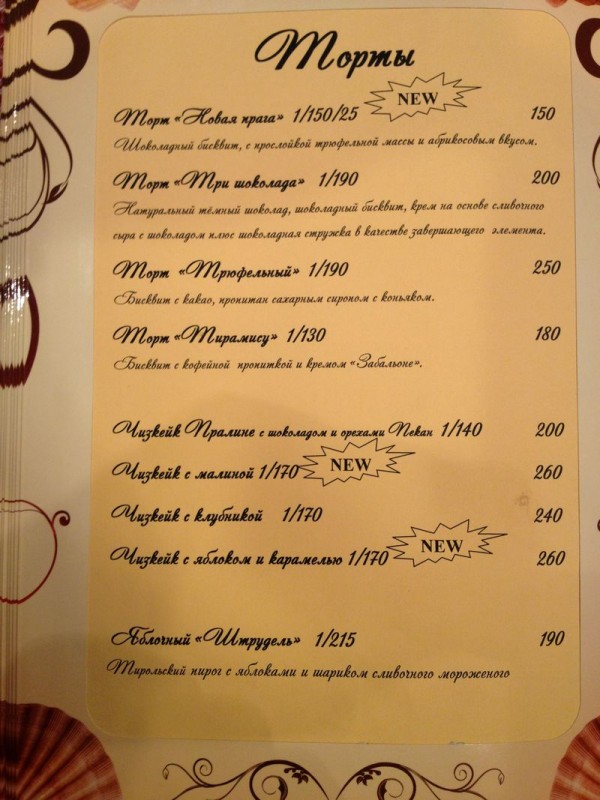 Торты
Торт «Новая прага» 1/150/25 NEW 150
Шоколадный бисквит, с прослойкой трюфельной массы и абрикосовым вкусом.
Торт «Три шоколада» 1/190 200
Натуральный тёмный шоколад, шоколадный бисквит, крем на основе сливочного
сыра с шоколадом плюс шоколадная стружка в качестве завершающего элемента.
Торт «Трюфельный» 1/190 250
Бисквит с какао, пропитан сахарным сиропом с коньяком.
Торт «Тирамису» 1/130 180
Бисквит с кофейной пропиткой и кремом «Забальоне».
Чизкейк Пралине с шоколадом и орехами Пекан 1/140 200
Чизкейк с малиной 1/170 NEW 260
Чизкейк с клубникой 1/170 240
Чизкейк с яблоком и карамелью 1/170 NEW 260
Яблочный «Штрудель» 1/215 190
Тирольский пирог с яблоками и шариком сливочного мороженого